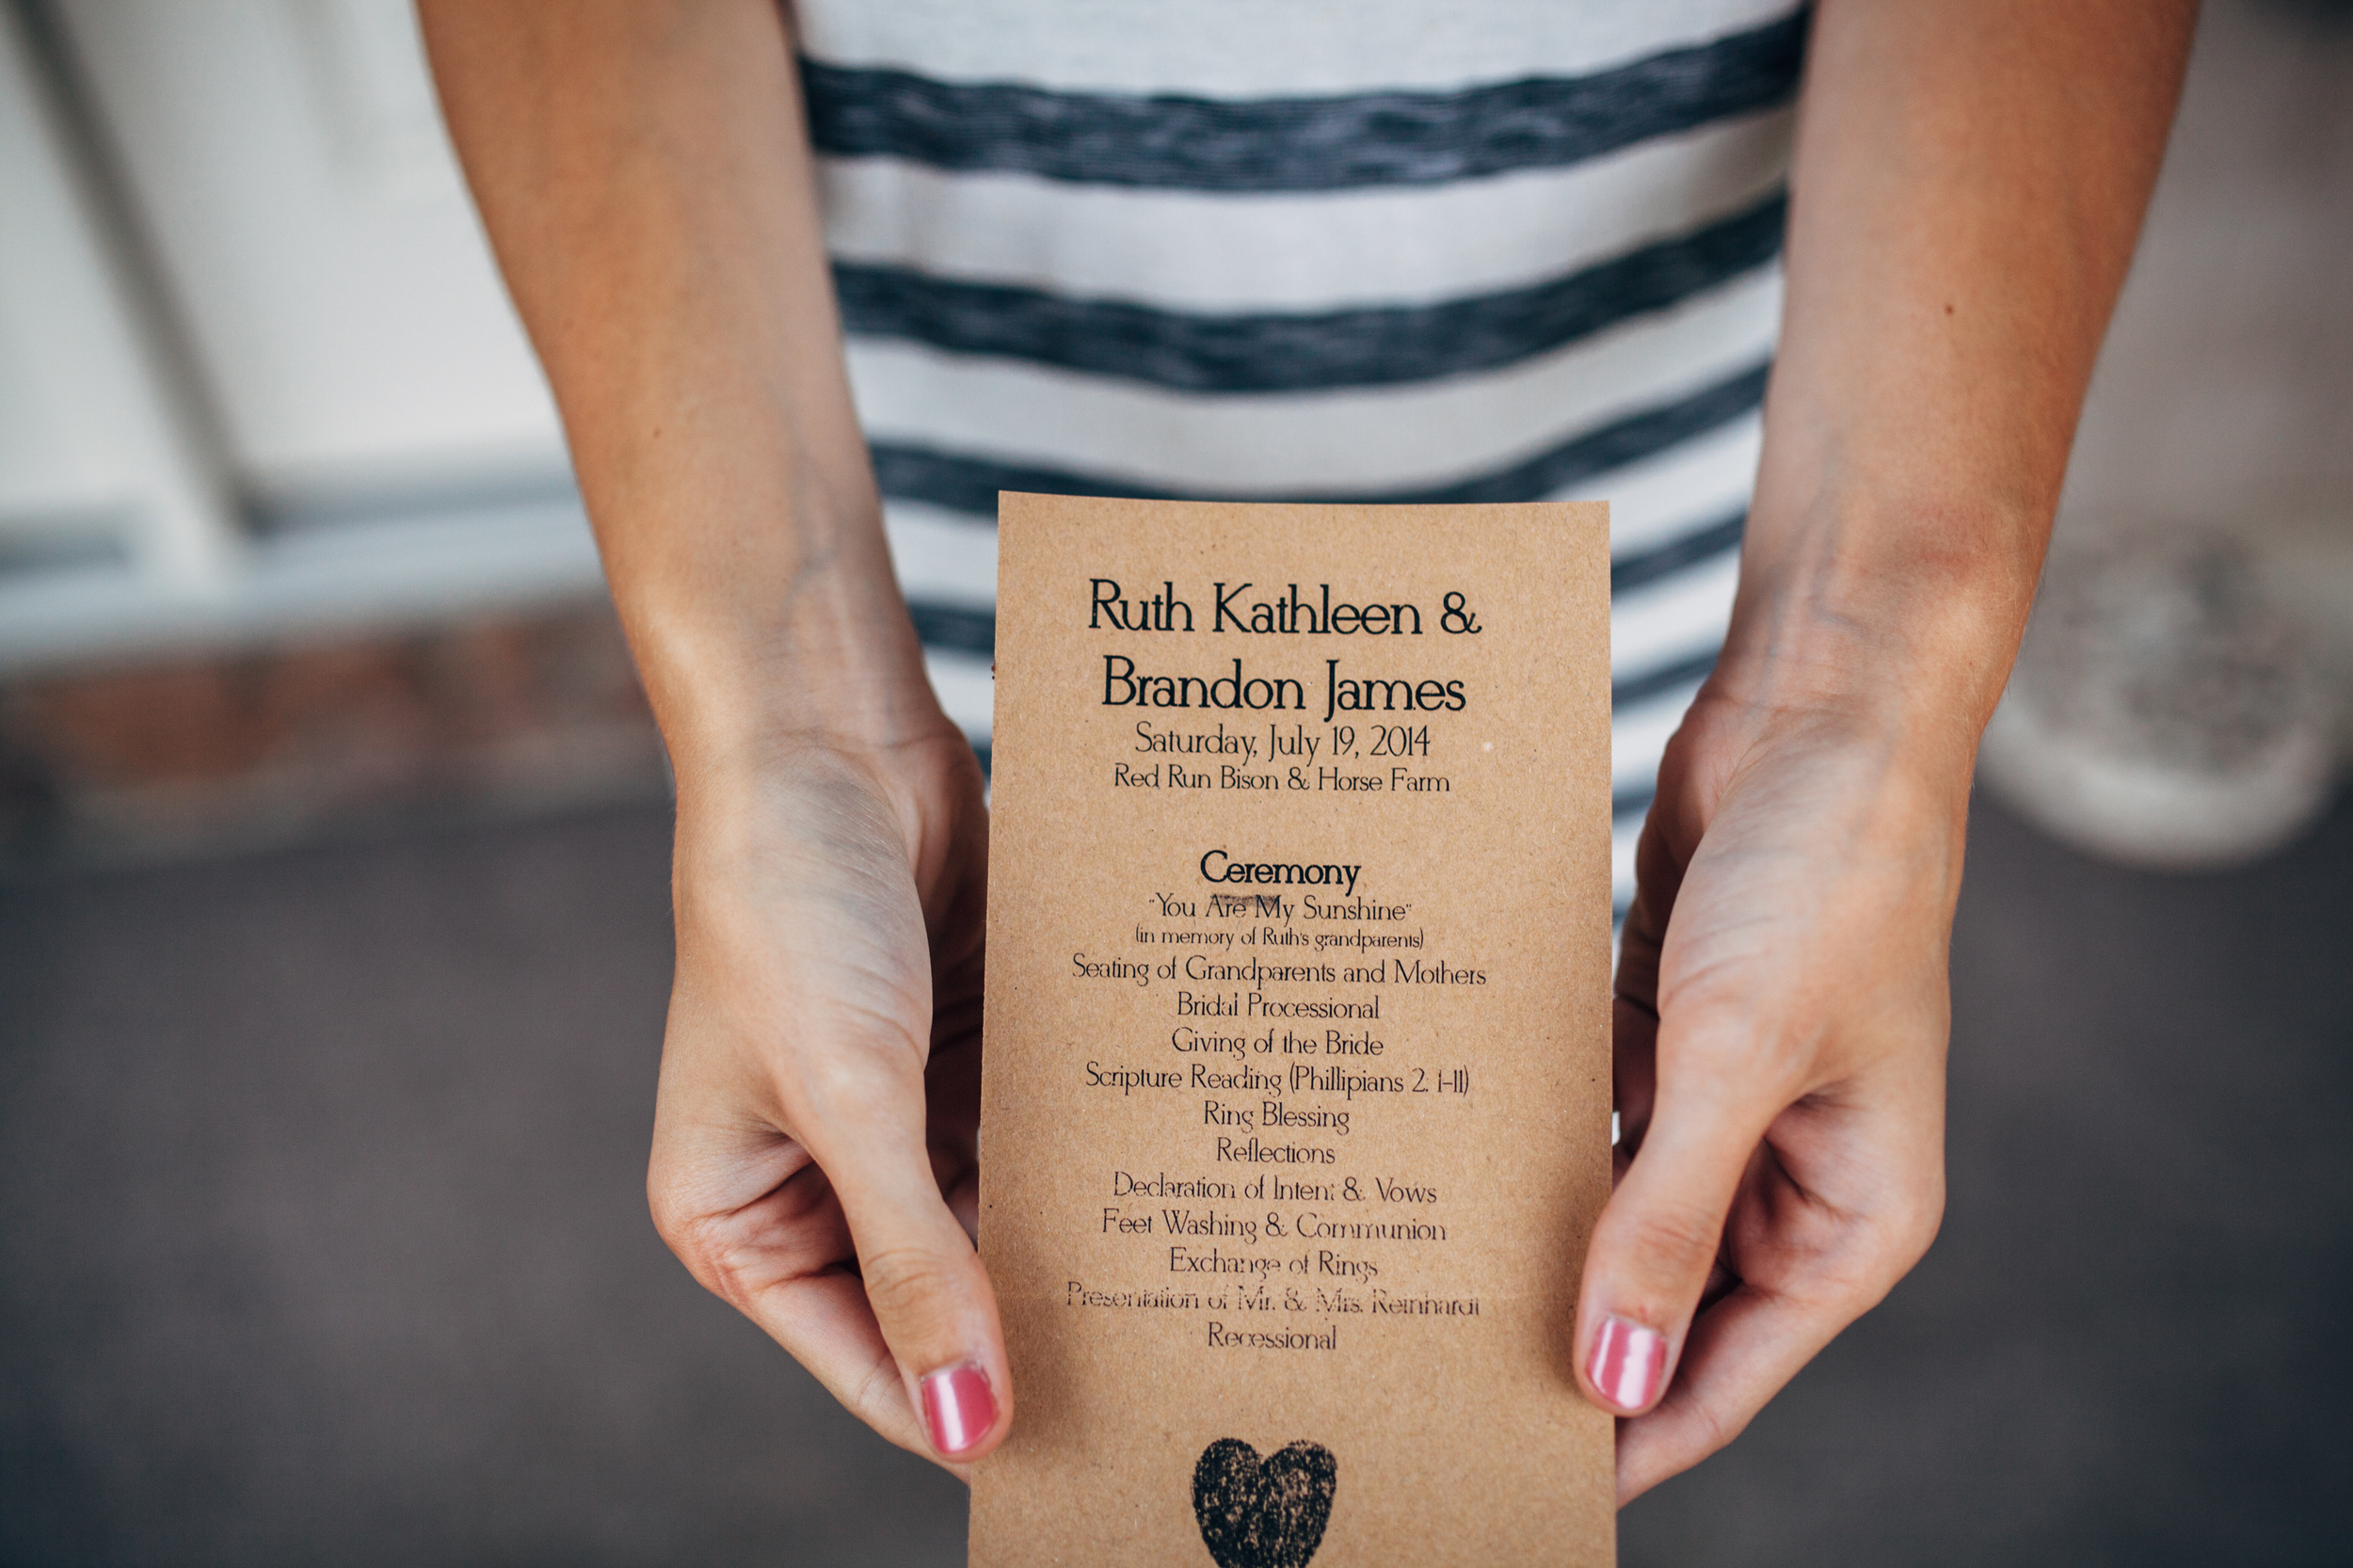 Ruth Kathleen &
Brandon James
Saturday, July 19, 2014
Red Run Bison & Horse Farm
Ceremony
"You Are My Sunshine"
(in memory of Ruth's grandparents)
Seating of Grandparents and Mothers
Bridal Processional
Giving of the Bride
Scripture Reading (Phillipians 2: 1-11)
Ring Blessing
Reflections
Declaration of Intent & Vows
Feet Washing & Communion
Exchange of Rings
Presentation of Mr. & Mrs. Reinhardt
Recessional